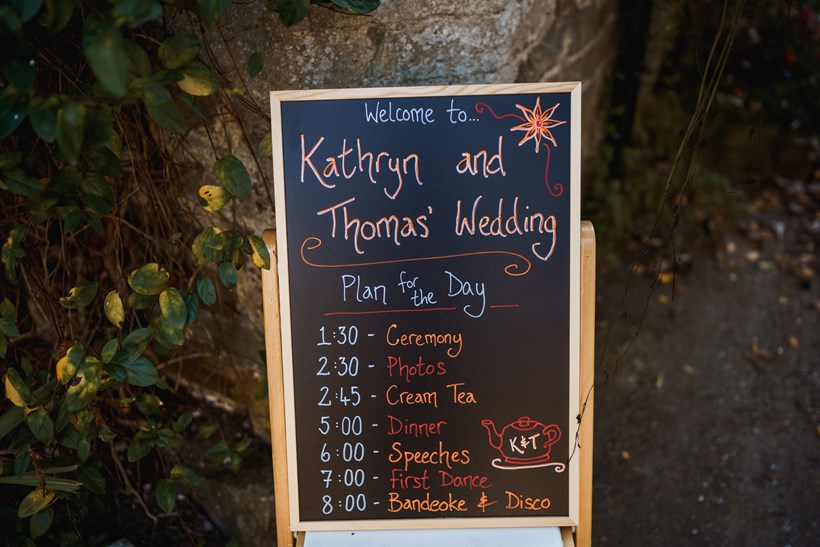 Welcome to...
Kathryn and
Thomas' Wedding
Plan for the Day
1:30 - Ceremony
2:30 - Photos
2:45 - Cream Tea
5:00 - Dinner
6:00 - Speeches
7:00 - First Dance
8:00 - Bandeoke & Disco
K&T